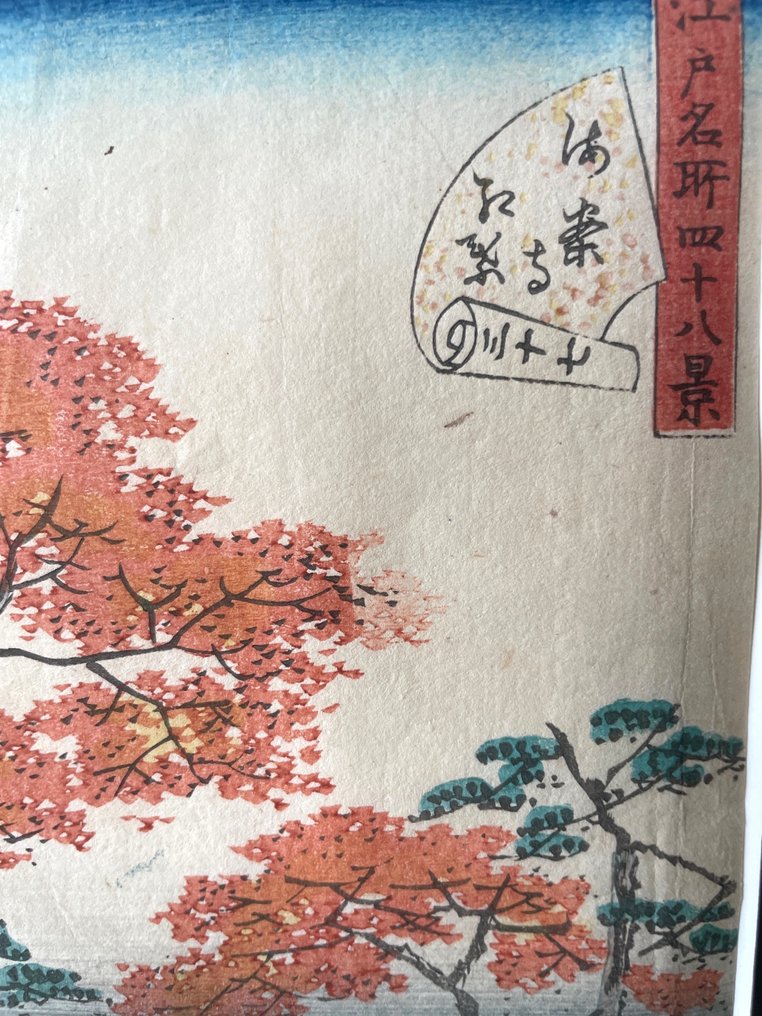 江戸名所四十八景
海案寺
紅葉
三十七